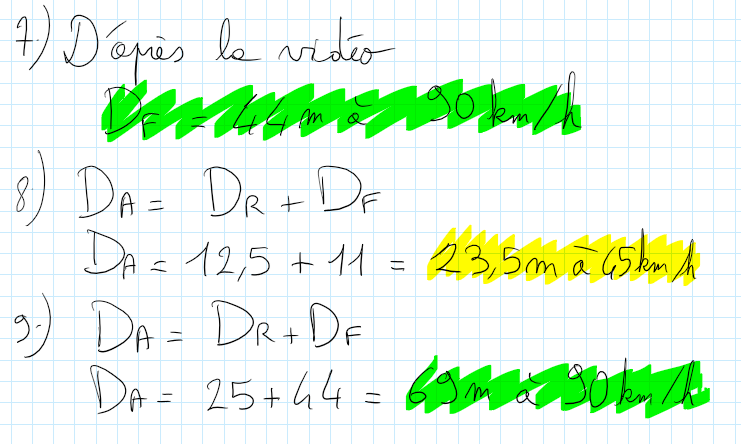 7) D'après la vidéo
DF = 44m à 90 km/h
8) DA = DR + DF
DA = 12,5 + 11 = 23,5m à 45km/h
9) DA = DR + DF
DA = 25 + 44 = 69m à 90km/h